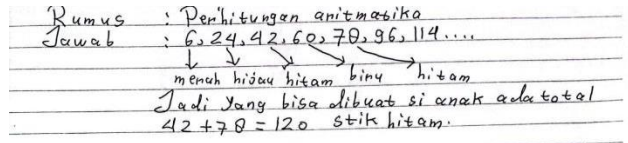 Rumus : Perhitungan aritmatika
Jawab : 6, 24, 42, 60, 78, 96, 114....
merah hijau hitam biru hitam
Jadi yang bisa dibuat si anak ada total
42 + 78 = 120 stik hitam.